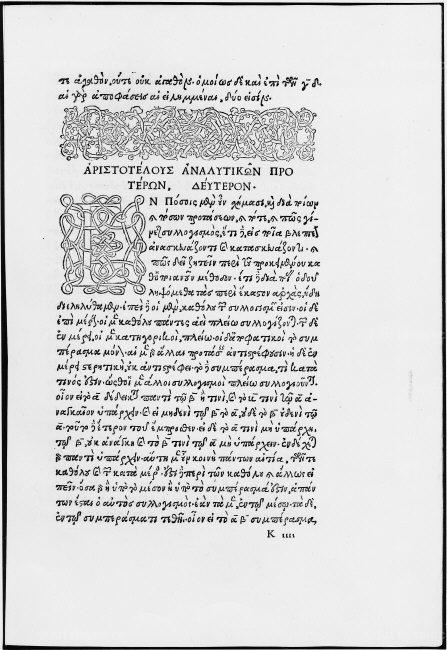 τε ἀγαθὸν, οὔτε οὐκ ἀγαθόν. ὁμοίως δὲ καὶ ἐπὶ τῶν γ̄ δ̄.
αἱ γὰρ ἀποφάσεις αἱ εἰλημμέναι, δύο εἰσίν.
ΑΡΙΣΤΟΤΕΛΟΥΣ ΑΝΑΛΥΤΙΚΩΝ ΠΡΟ
ΤΕΡΩΝ, ΔΕΥΤΕΡΟΝ.
ΕΝ Πόσοις μὲν οὖν σχήμασι, καὶ διὰ ποίων
καὶ πόσων προτάσεων, καὶ πότε, καὶ πῶς γί
νεται συλλογισμὸς, ἔτι δ' εἰς ποῖα βλεπτέον
ἀνασκευάζοντι καὶ κατασκευάζοντι. καὶ
πῶς δεῖ ζητεῖν περὶ τοῦ προκειμένου κα
θ' ὁποιανοῦν μέθοδον. ἔτι δὲ διὰ ποίας ὁδοῦ
ληψόμεθα τὰς περὶ ἕκαστον ἀρχὰς, ἤδη
διεληλύθαμεν. ἐπεὶ δ' οἱ μὲν, καθόλου τῶν συλλογισμῶν εἰσιν. οἱ δὲ
ἐπὶ μέρους. οἱ μὲν καθόλου πάντες ἀεὶ πλείω συλλογίζονται. τῶν δὲ
ἐν μέρει, οἱ μὲν κατηγορικοὶ, πλείω. οἱ δ' ἀποφατικοὶ τὸ συμ
πέρασμα μόνον. αἱ μὲν γὰρ ἄλλαι προτάσεις ἀντιστρέφουσιν. ἡ δὲ ἐν
μέρει στερητικὴ, οὐκ ἀντιστρέφει. τὸ δὲ συμπέρασμα, τὶ κατά
τινός ἐστιν. ὥσθ' οἱ μὲν ἄλλοι συλλογισμοὶ πλείω συλλογίζονται.
οἷον εἰ τὸ ᾱ δέδεικται παντὶ τῷ β̄ ἢ τινὶ, καὶ τὸ β̄ τινὶ τῷ ᾱ ἀ
ναγκαῖον ὑπάρχειν. καὶ εἰ μηδενὶ τῷ β̄ τὸ ᾱ, οὐδὲ τὸ β̄ οὐδενὶ τῷ
ᾱ. τοῦτο δ' ἕτερον τοῦ ἔμπροσθεν. εἰ δὲ τὸ ᾱ τινὶ μὴ ὑπάρχει
τῷ β̄, οὐκ ἀνάγκη καὶ τὸ β̄ τινὶ τῷ ᾱ μὴ ὑπάρχειν. ἐνδέχεται
γὰρ παντὶ ὑπάρχειν. αὕτη μὲν οὖν κοινὴ πάντων αἰτία, τῶν τε
καθόλου καὶ τῶν κατὰ μέρος. ἔστι δὲ περὶ τῶν καθόλου καὶ ἄλλως εἰ
πεῖν. ὅσα γὰρ ἢ ὑπὸ τὸ μέσον ἢ ὑπὸ τὸ συμπέρασμά ἐστιν, ἁπάν
των ἔσται ὁ αὐτὸς συλλογισμός. ἐὰν τὰ μὲν ἐν τῷ μέσῳ. τὰ δὲ,
ἐν τῷ συμπεράσματι τεθῇ. οἷον εἰ τὸ ᾱ β̄ συμπέρασμα,
K iiii